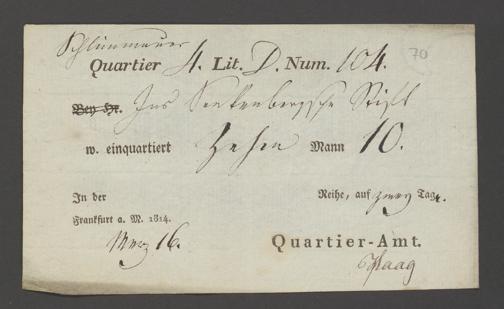 Quartier 4. Lit. D. Num. 104.
70
Bey Hr. Ins Senkenbergsche Stift
w. einquartiert Zehen Mann 10.
In der Reihe, auf zwey Tage.
Frankfurt a. M. 1814.
März 16.
Quartier-Amt.
Haag